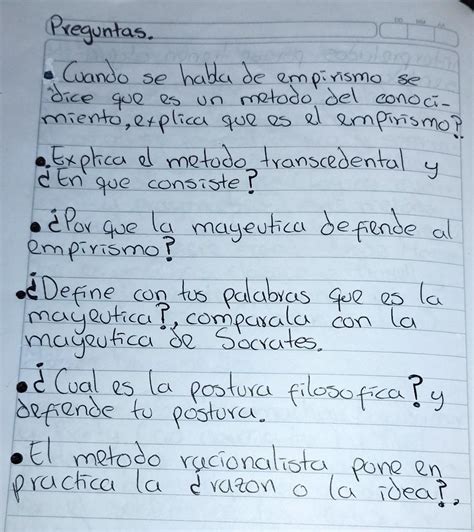 Preguntas.
• Cuando se habla de empirismo se
dice que es un metodo del conoci-
miento, explica que es el empirismo?
• Explica el metodo transcedental y
¿En que consiste?
• ¿Por que la mayeutica defiende al
empirismo?
• ¿Define con tus palabras que es la
mayeutica?, comparala con la
mayeutica de Socrates.
• ¿Cual es la postura filosofica? y
defiende tu postura.
• El metodo racionalista pone en
practica la ¿razon o la idea?.